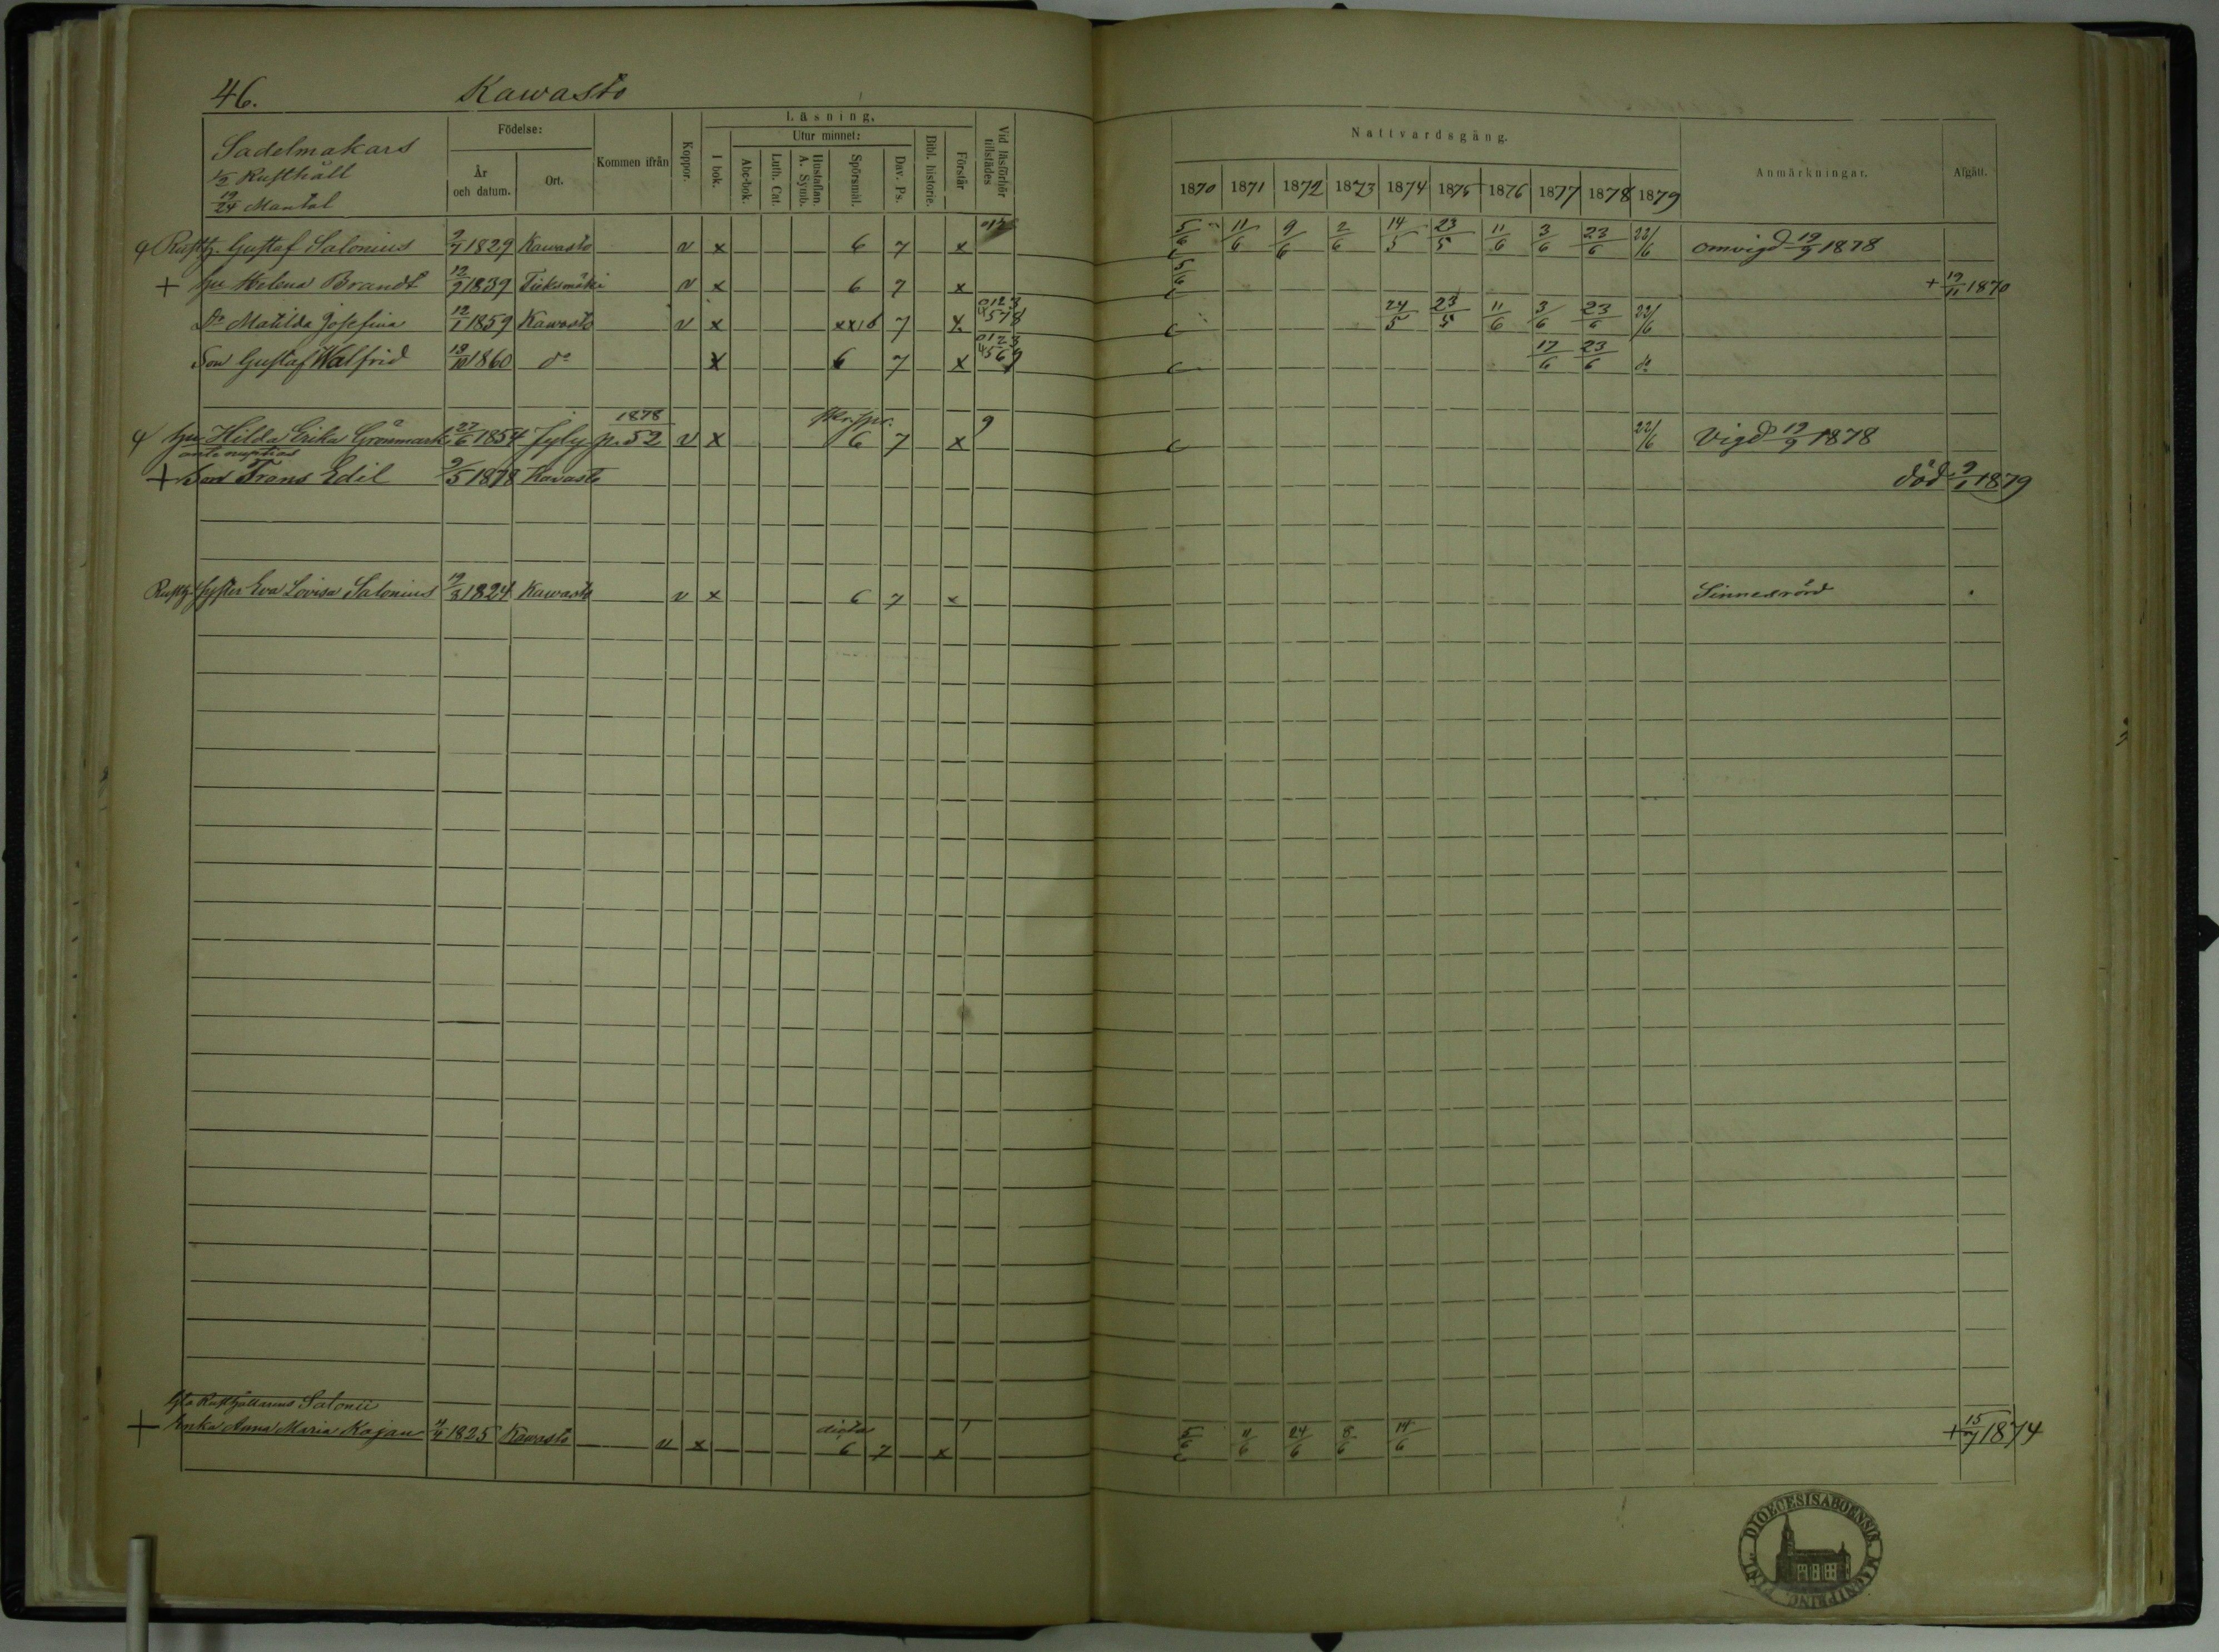 46. Kawasto
Sadelmakars
1/2 Rusthåll
19/24 Mantal
Födelse:
År och datum.
Ort.
Kommen ifrån
Koppor.
Läsning.
I bok.
Utur minnet:
Abc-bok.
Luth. Cat.
Hustaflan. A. Symb.
Spörsmål.
Dav. Ps.
Bibl. historie.
Förstår
Vid läsförhör tillstädes
Nattvardsgång.
1870 1871 1872 1873 1874 1875 1876 1877 1878 1879
Anmärkningar.
Afgått.
Rusth. Gustaf Salonius 1829 Kawasto v x 6 7 x 5/6 11/6 9/6 2/6 14/5 23/5 11/6 3/6 23/6 22/6 omvigd 19/9 1878
+ hu Helena Brandt 12/9 1839 Tuksmäki v x 6 7 x 5/6 + 19/11 1870
Dr Matilda Josefina 12/1 1859 Kawasto v x xx16 7 x 0123 4578 24/5 23/5 11/6 3/6 23/6 22/6
Son Gustaf Walfrid 1860 do x 6 7 x 0123 4569 17/6 23/6 do
hu Hilda Erika Grönmark 27/6 1854 Jyly 1878 p. 52 v x 6 7 x 9 22/6 Vigd 19/9 1878
ante nuptias
+ Son Frans Edil 9/5 1878 Kavasto död 9/1 1879
Rusth. syster Eva Lovisa Salonius 19/3 1824 Kawasto v x 6 7 x Sinnesrörd
Gla Rusthållarens Salonii
+ Enka Anna Maria Kajan 4/4 1825 Kawasto v x 6 7 x 1 5/6 11/6 24/6 8/6 14/6 + 15/7 1874
DIOECESIS ABOENSIS MAGNI PRINC. FINL.